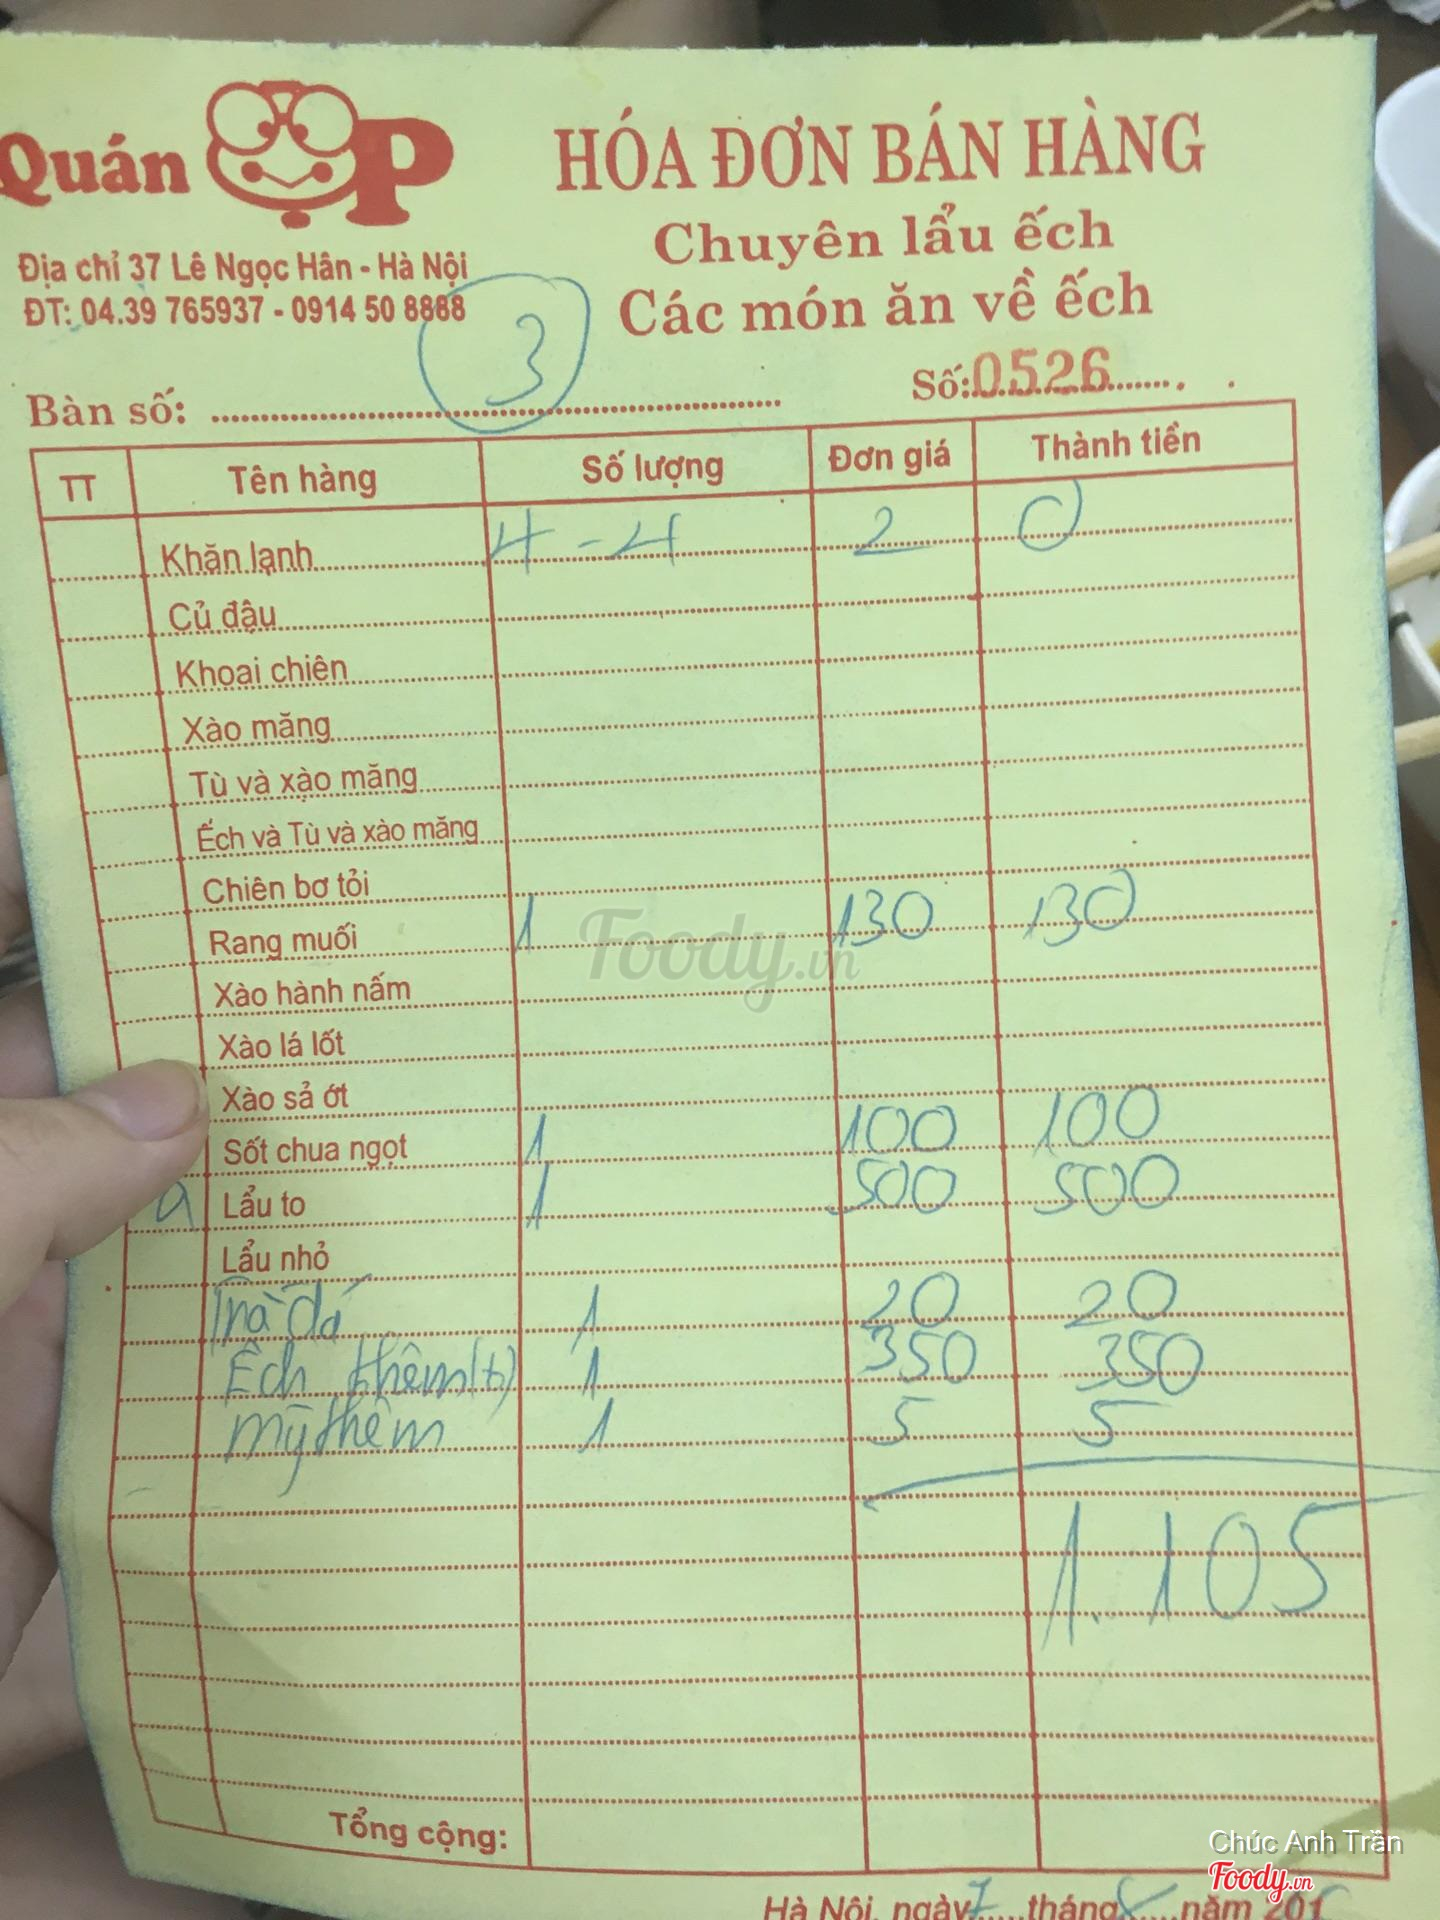 Quán ộp
HÓA ĐƠN BÁN HÀNG
Chuyên lẩu ếch
Các món ăn về ếch
Địa chỉ 37 Lê Ngọc Hân - Hà Nội
ĐT: 04.39 765937 - 0914 50 8888
Bàn số: 3
Số: 0526
TT Tên hàng Số lượng Đơn giá Thành tiền
Khăn lạnh 4 - 4 2 0
Củ đậu
Khoai chiên
Xào măng
Tù và xào măng
Ếch và Tù và xào măng
Chiên bơ tỏi
Rang muối 1 130 130
Xào hành nấm
Xào lá lốt
Xào sả ớt
Sốt chua ngọt 1 100 100
Lẩu to 1 500 500
Lẩu nhỏ
Trà đá 1 20 20
Ếch thêm (t) 1 350 350
mỳ thêm 1 5 5
1.105
Tổng cộng:
Hà Nội, ngày 7 tháng 8 năm 201
Foody.vn
Chúc Anh Trần
Foody.vn